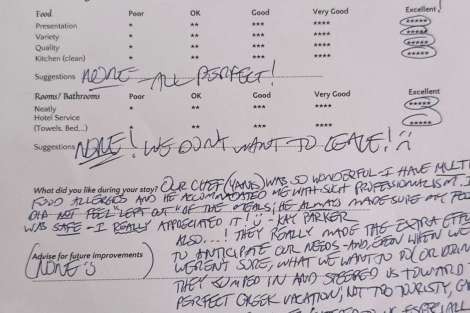 Food Poor OK Good Very Good Excellent!
Presentation * ** *** **** *****
Variety * ** *** **** *****
Quality * ** *** **** *****
Kitchen (clean) * ** *** **** *****
Suggestions NONE - ALL PERFECT!
Rooms/ Bathrooms Poor OK Good Very Good Excellent
Neatly * ** *** **** *****
Hotel Service
(Towels, Bed...) ** *** **** *****
Suggestions NONE! WE DON'T WANT TO LEAVE!
What did you like during your stay? OUR CHEF (YANIS) WAS SO WONDERFUL - I HAVE MULTI
FOOD ALLERGIES AND HE ACCOMMODATED ME WITH SUCH PROFESSIONALISM. I
DID NOT FEEL "LEFT OUT" OF THE MEALS; HE ALWAYS MADE SURE MY FOO
WAS SAFE - I REALLY APPRECIATED IT! - KAY PARKER
ALSO...! THEY REALLY MADE THE EXTRA EFFO
Advise for future improvements TO ANTICIPATE OUR NEEDS - AND, EVEN WHEN WE
NONE WEREN'T SURE, WHAT WE WANT TO DO (OR
THEY JUMPED IN AND SPEEDED US TOWARD
PERFECT GREEK VACATION; NOT TOO TOURISTY,